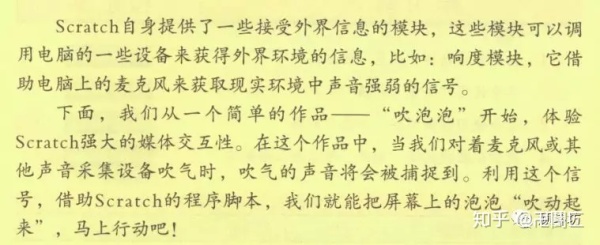 Scratch自身提供了一些接受外界信息的模块，这些模块可以调
用电脑的一些设备来获得外界环境的信息，比如：响度模块，它借
助电脑上的麦克风来获取现实环境中声音强弱的信号。
下面，我们从一个简单的作品——“吹泡泡”开始，体验
Scratch强大的媒体交互性。在这个作品中，当我们对着麦克风或其
他声音采集设备吹气时，吹气的声音将会被捕捉到。利用这个信
号，借助Scratch的程序脚本，我们就能把屏幕上的泡泡“吹动起
来”，马上行动吧！
知乎